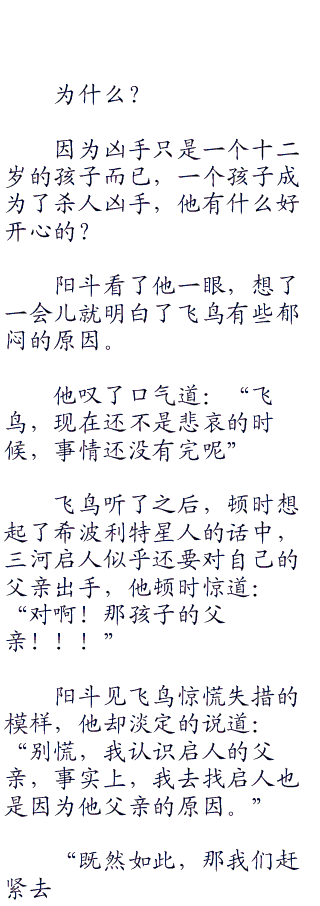 为什么？
因为凶手只是一个十二
岁的孩子而已，一个孩子成
为了杀人凶手，他有什么好
开心的？
阳斗看了他一眼，想了
一会儿就明白了飞鸟有些郁
闷的原因。
他叹了口气道：“飞
鸟，现在还不是悲哀的时
候，事情还没有完呢”
飞鸟听了之后，顿时想
起了希波利特星人的话中，
三河启人似乎还要对自己的
父亲出手，他顿时惊道：
“对啊！那孩子的父
亲！！！”
阳斗见飞鸟惊慌失措的
模样，他却淡定的说道：
“别慌，我认识启人的父
亲，事实上，我去找启人也
是因为他父亲的原因。”
“既然如此，那我们赶
紧去